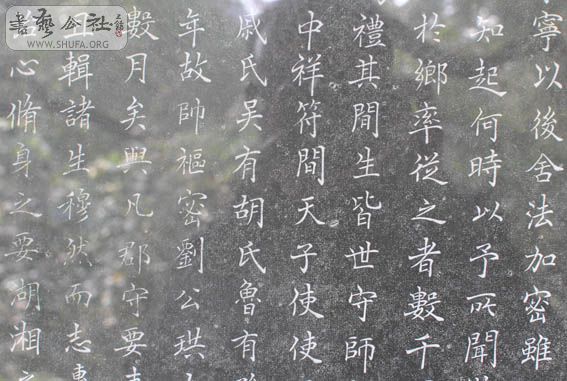 寧以後舍法加密雖
知起何時以予所聞
於鄉率從之者數千
禮其間生皆世守師
中祥符間天子使使
戚氏吳有胡氏魯有
年故帥樞密劉公珙
數月矣與凡郡守要
輯諸生穆然而志
心脩身之要湖湘
書藝公社
WWW.SHUFA.ORG